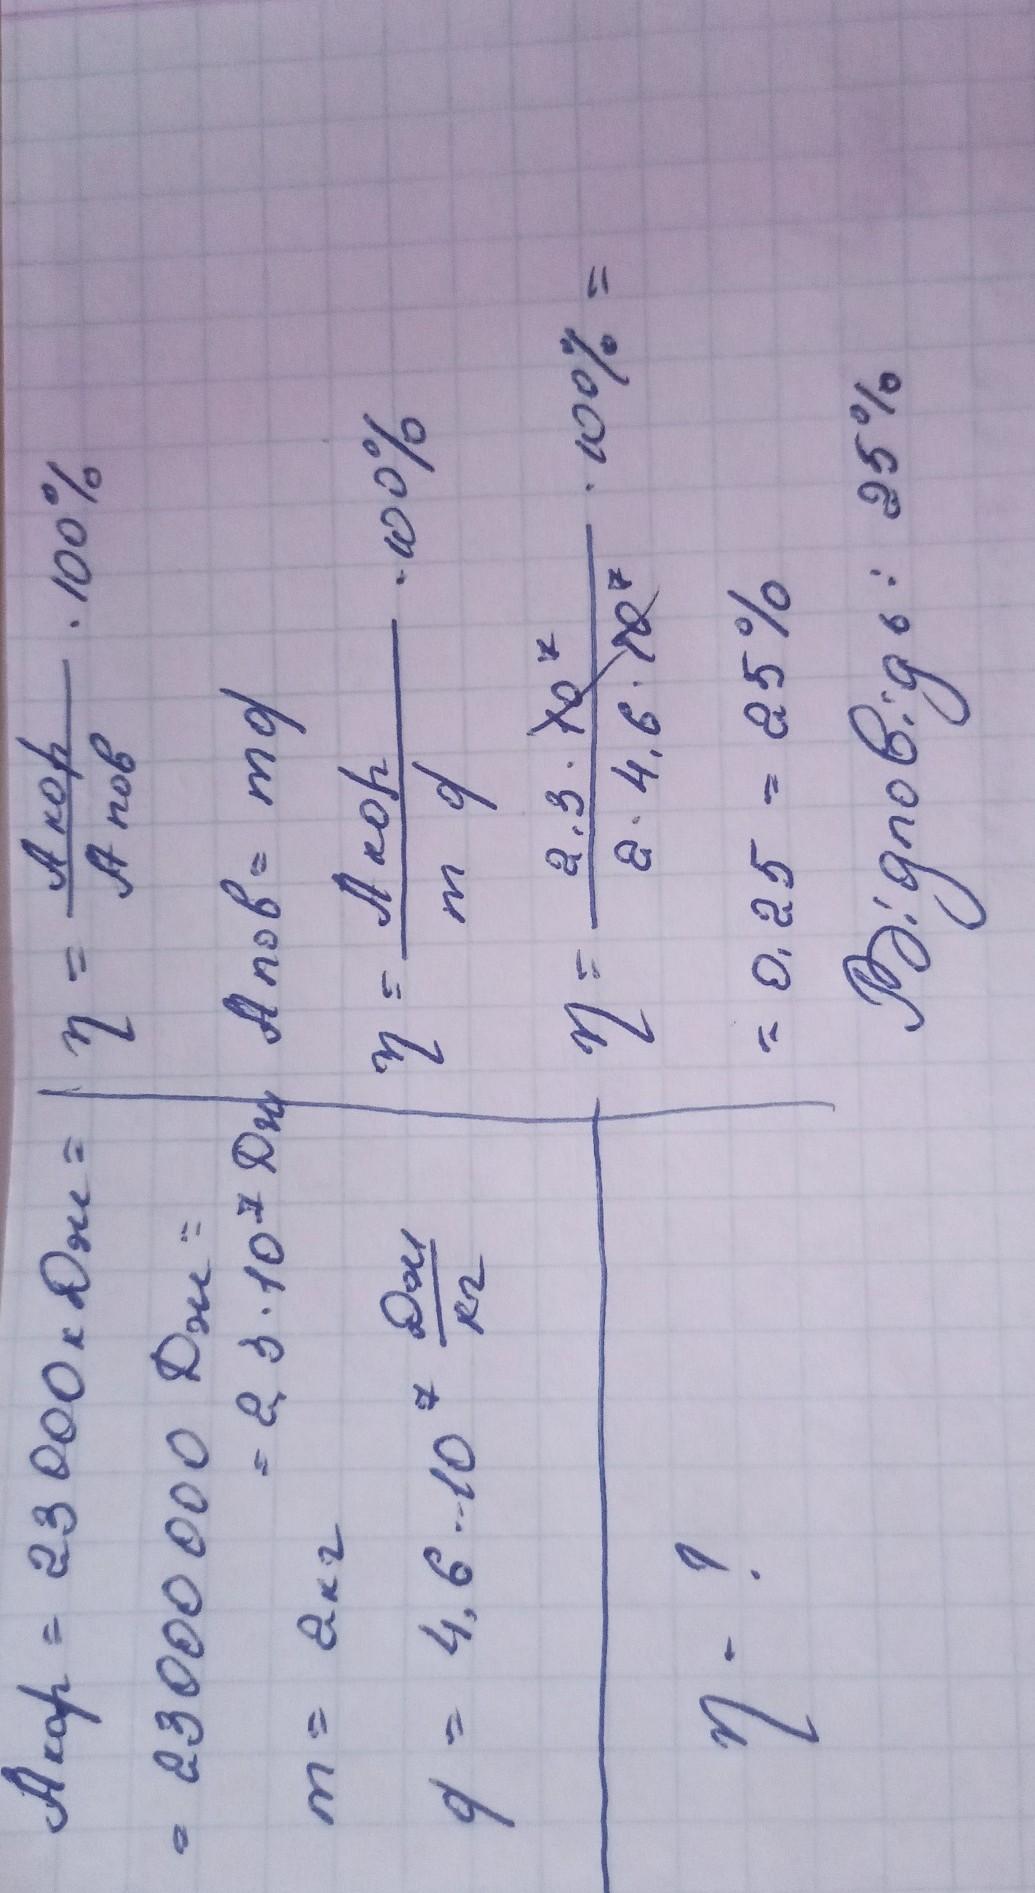 Акор = 23 000 кДж =
= 23000 000 Дж =
= 2,3 · 10⁷ Дж
m = 2кг
q = 4,6 · 10⁷ Дж/кг
η - ?
η = Акор/Апов · 100%
Апов = mq
η = Акор/m q · 100%
η = 2,3 · 10⁷/2 · 4,6 · 10⁷ · 100% =
= 0,25 = 25%
Відповідь: 25%